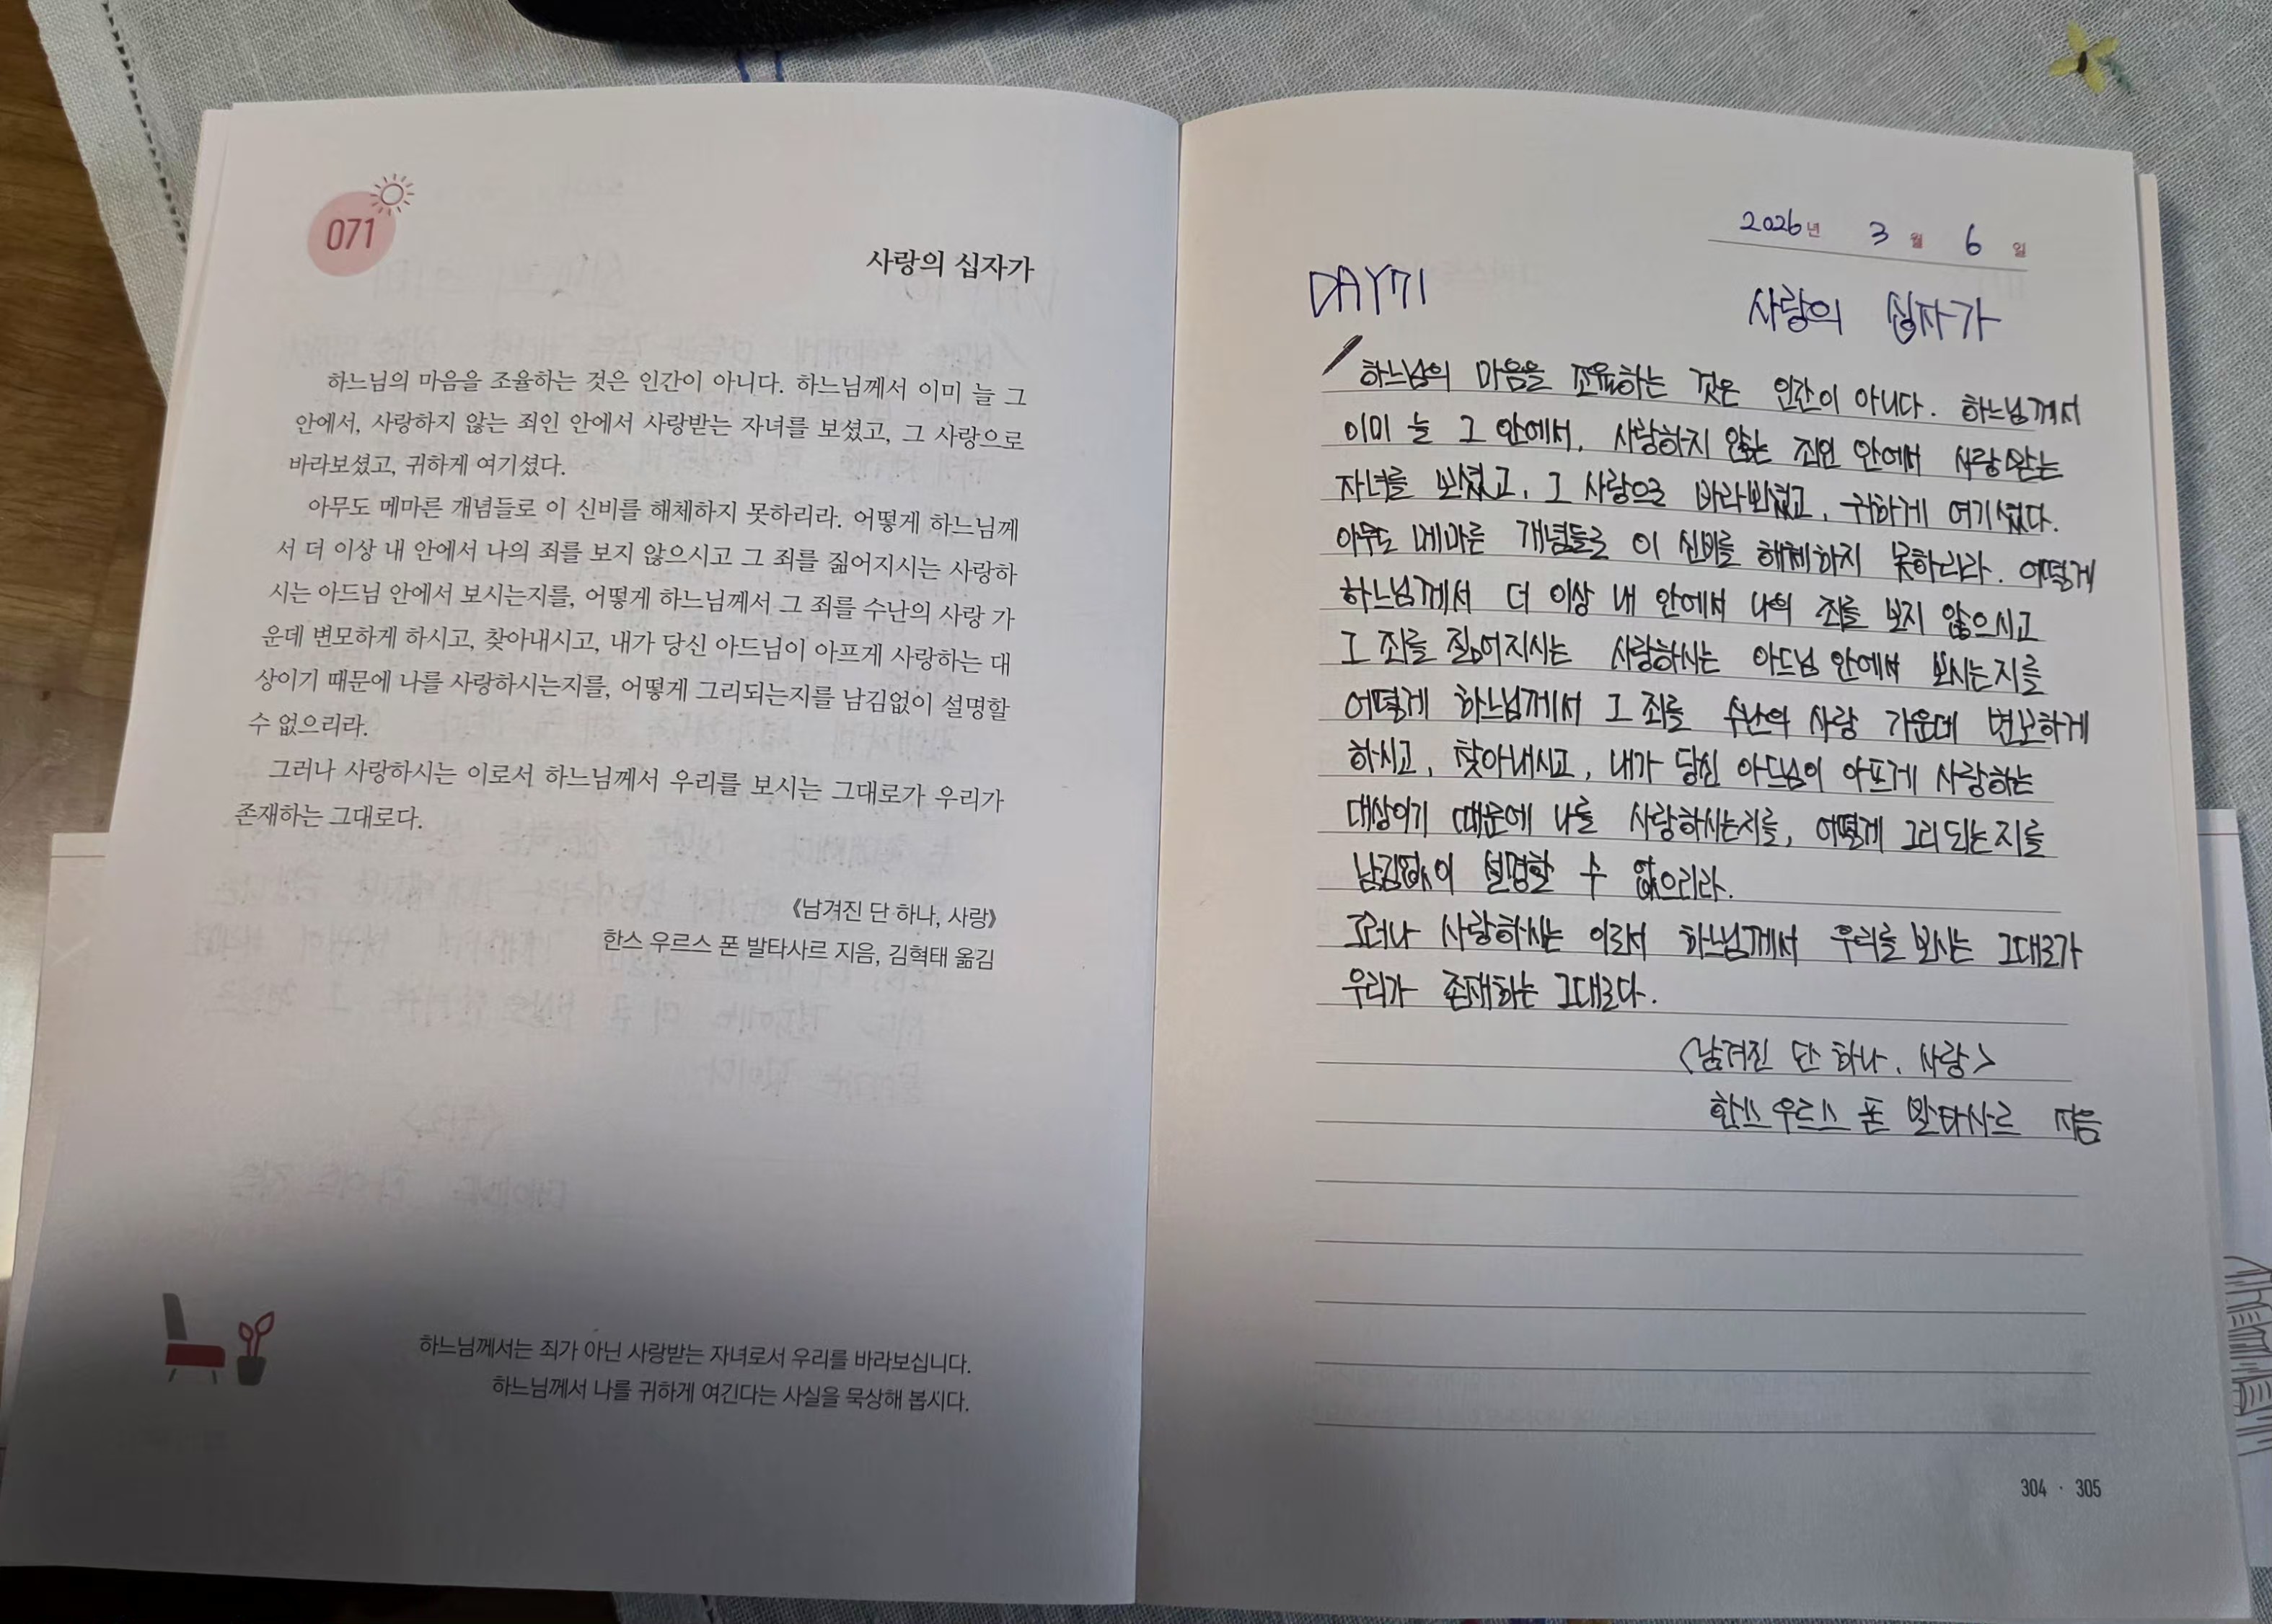 071
사랑의 십자가
하느님의 마음을 조율하는 것은 인간이 아니다. 하느님께서 이미 늘 그
안에서, 사랑하지 않는 죄인 안에서 사랑받는 자녀를 보셨고, 그 사랑으로
바라보셨고, 귀하게 여기셨다.
아무도 메마른 개념들로 이 신비를 해체하지 못하리라. 어떻게 하느님께
서 더 이상 내 안에서 나의 죄를 보지 않으시고 그 죄를 짊어지시는 사랑하
시는 아드님 안에서 보시는지를, 어떻게 하느님께서 그 죄를 수난의 사랑 가
운데 변모하게 하시고, 찾아내시고, 내가 당신 아드님이 아프게 사랑하는 대
상이기 때문에 나를 사랑하시는지를, 어떻게 그리되는지를 남김없이 설명할
수 없으리라.
그러나 사랑하시는 이로서 하느님께서 우리를 보시는 그대로가 우리가
존재하는 그대로다.
《남겨진 단 하나, 사랑》
한스 우르스 폰 발타사르 지음, 김혁태 옮김
하느님께서는 죄가 아닌 사랑받는 자녀로서 우리를 바라보십니다.
하느님께서 나를 귀하게 여긴다는 사실을 묵상해 봅시다.
2026년 3월 6일
DAY71
사랑의 십자가
하느님의 마음을 조율하는 것은 인간이 아니다. 하느님께서
이미 늘 그 안에서, 사랑하지 않는 죄인 안에서 사랑받는
자녀를 보셨고, 그 사랑으로 바라보셨고, 귀하게 여기셨다.
아무도 메마른 개념들로 이 신비를 해체하지 못하리라. 어떻게
하느님께서 더 이상 내 안에서 나의 죄를 보지 않으시고
그 죄를 짊어지시는 사랑하시는 아드님 안에서 보시는지를
어떻게 하느님께서 그 죄를 수난의 사랑 가운데 변모하게
하시고, 찾아내시고, 내가 당신 아드님이 아프게 사랑하는
대상이기 때문에 나를 사랑하시는지를, 어떻게 그리되는지를
남김없이 설명할 수 없으리라.
그러나 사랑하시는 이로서 하느님께서 우리를 보시는 그대로가
우리가 존재하는 그대로다.
<남겨진 단 하나, 사랑>
한스 우르스 폰 발타사르 지음
304 · 305